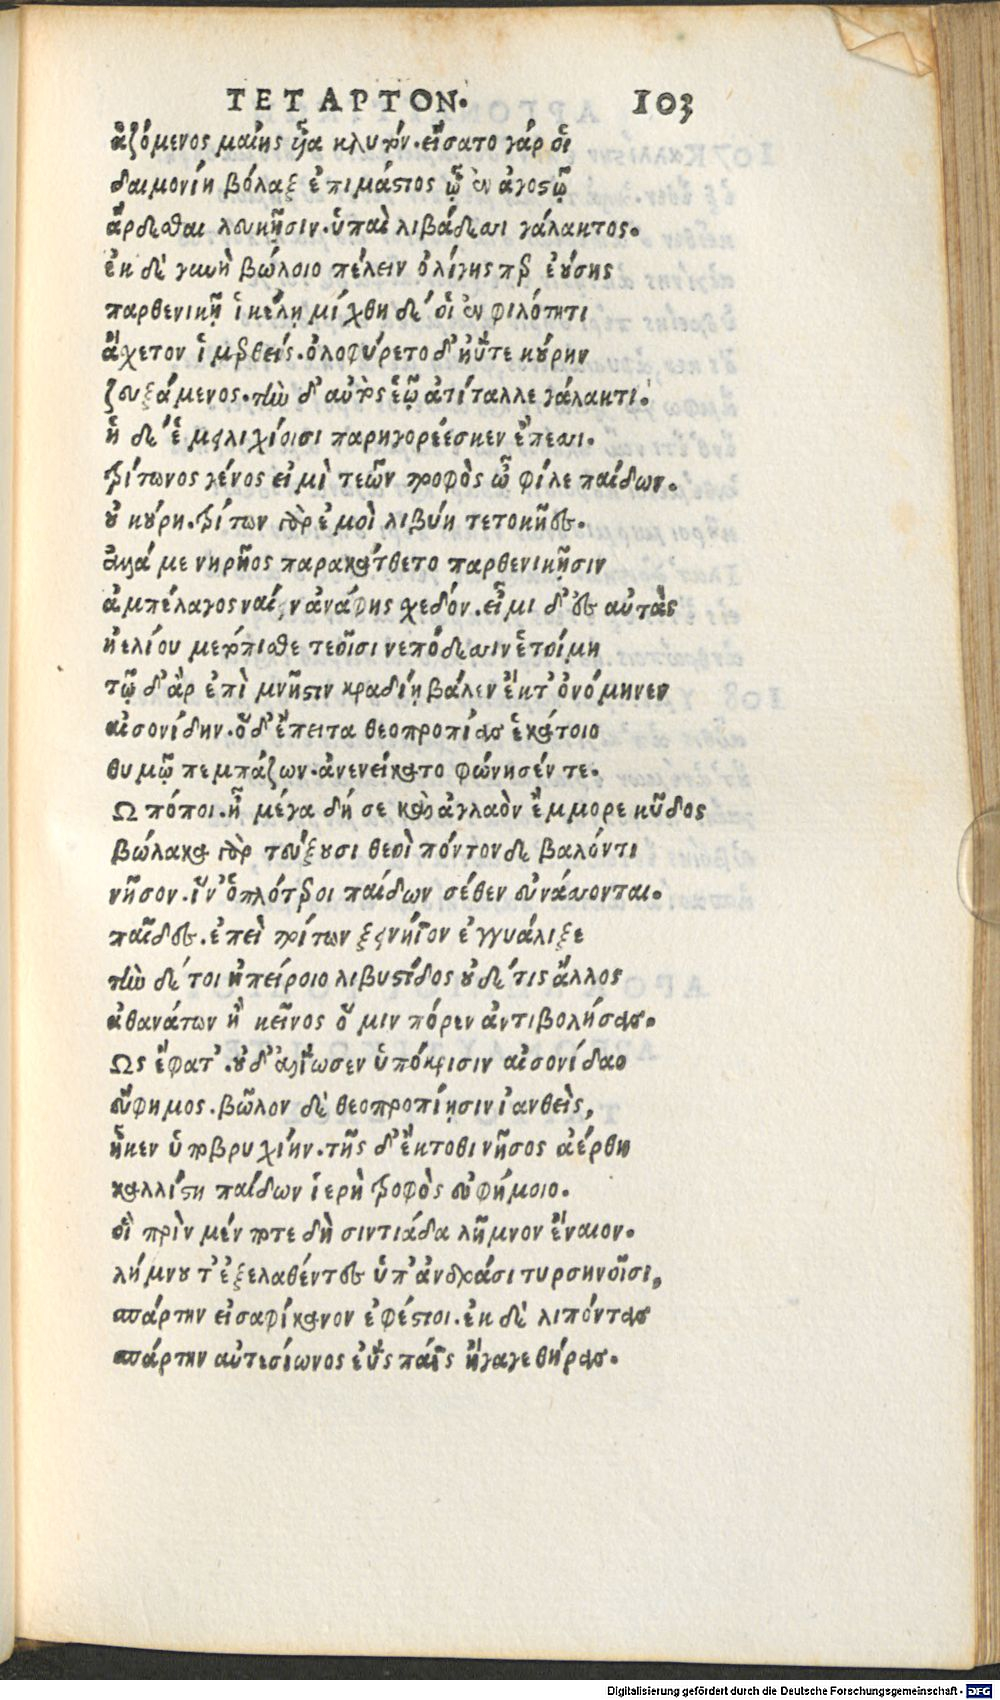 ΤΕΤΑΡΤΟΝ. 103
ἁζόμενος μαίης ὗα κλυτόν. εἴσατο γάρ οἱ
δαιμονίη βόλαξ ἐπιμάστιος ᾧ ἐν ἀγοστῷ
ἄρδεσθαι λευκῇσιν ὑπαὶ λιβάδεσσι γάλακτος.
ἐκ δὲ γυνὴ βώλοιο πέλειν ὀλίγης περ ἐούσης
παρθενικῇ ἰκέλη μίχθη δέ οἱ ἐν φιλότητι
ἄσχετον ἱμερθείς. ὀλοφύρετο δ' ἠΰτε κούρην
ζευξάμενος. τὴν δ' αὐτὸς ἑῷ ἀτίταλλε γάλακτι.
ἡ δέ ἑ μειλιχίοισι παρηγορέεσκεν ἔπεσσι.
Τρίτωνος γένος εἰμὶ τεῶν τροφὸς ὦ φίλε παίδων.
οὐ κούρη. τρίτων γὰρ ἐμοὶ λιβύη τε τοκῆες.
ἀλλά με νηρῆος παρακάτθετο παρθενικῇσιν
ἀμπέλαγος ναίειν ἀνάφης σχεδόν. εἶμι δ' ἐς αὐτὰς
ἠελίου μετόπισθε τεοῖσι νεπόδεσσιν ἑτοίμη
τῷ δ' ἂρ ἐπὶ μνῆστιν κραδίῃ βάλεν ἔκ τ' ὀνόμηνεν
αἰσονίδην. ὁ δ' ἔπειτα θεοπροπίας ἑκάτοιο
θυμῷ πεμπάζων. ἀνενείκατο φώνησέν τε.
Ω πόποι. ἦ μέγα δή σε καὶ ἀγλαὸν ἔμμορε κῦδος
βώλακα γὰρ τεύξουσι θεοὶ πόντονδε βαλόντι
νῆσον. ἵν' ὁπλότεροι παίδων σέθεν ἐννάσσονται.
παῖδες. ἐπεὶ τρίτων ξεινήϊον ἐγγυάλιξε
τὴν δέ τοι ἠπείροιο λιβυστίδος οὐδέ τις ἄλλος
ἀθανάτων ἢ κεῖνος ὅ μιν πόρεν ἀντιβολήσας.
Ως ἔφατ'. οὐδ' ἁλίωσεν ὑπόκρισιν αἰσονίδαο
εὔφημος. βῶλον δὲ θεοπροπίῃσιν ἰανθεὶς,
ἧκεν ὑποβρυχίην. τῆς δ' ἔκτοθι νῆσος ἀέρθη
καλλίστη παίδων ἱερὴ τροφὸς εὐφήμοιο.
οἳ πρὶν μέν ποτε δὴ σιντιάδα λῆμνον ἔναιον.
λήμνου τ' ἐξελαθέντες ὑπ' ἀνδράσι τυρσηνοῖσι,
σπάρτην εἰσαφίκανον ἐφέστιοι. ἐκ δὲ λιπόντας
σπάρτην αὐτεσίωνος ἐῢς πάϊς ἤγαγε θήρας.
Digitalisierung gefördert durch die Deutsche Forschungsgemeinschaft - DFG